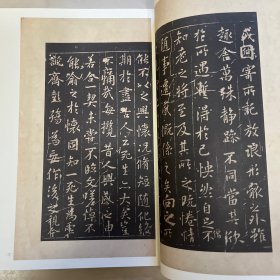 或因寄所託放浪形骸之外雖
趣舍萬殊靜躁不同當其欣
於所遇暫得於己怏然自足不
知老之將至及其所之既惓情
隨事遷感慨係之矣向之所
能不以之興懷況脩短隨化終
期於盡古人云死生亦大矣豈
不痛哉每攬昔人興感之由
若合一契未嘗不臨文嗟悼不
能喻之於懷固知一死生為虛
誕齊彭殤為妄作後之視今